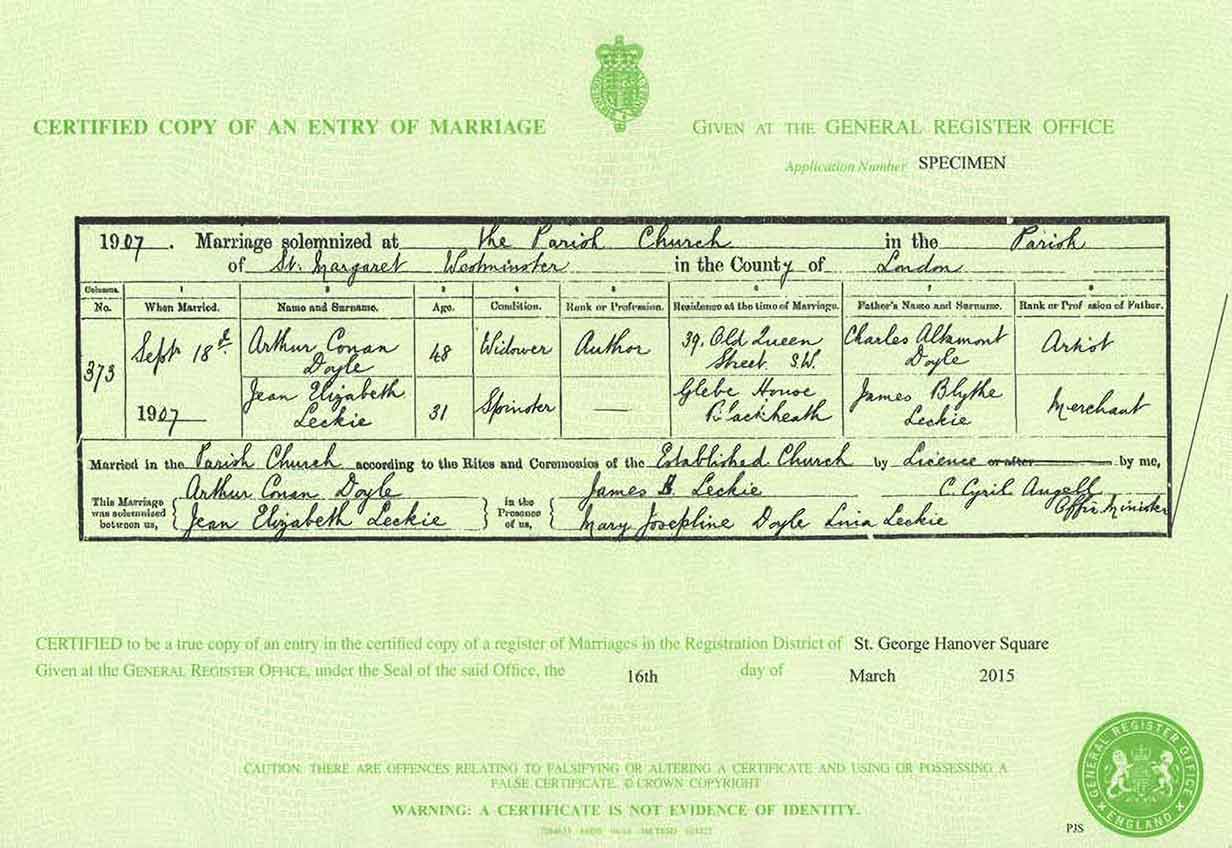 CERTIFIED COPY OF AN ENTRY OF MARRIAGE
GIVEN AT THE GENERAL REGISTER OFFICE
Application Number SPECIMEN
1907. Marriage solemnized at the Parish Church in the Parish
of St. Margaret Westminster in the County of London
Columns. 1 2 3 4 5 6 7 8
No. When Married. Name and Surname. Age. Condition. Rank or Profession. Residence at the time of Marriage. Father's Name and Surname. Rank or Profession of Father.
373 Sept 18th 1907
Arthur Conan Doyle 48 Widower Author 39, Old Queen Street S.W. Charles Altamont Doyle Artist
Jean Elizabeth Leckie 31 Spinster — Glebe House Blackheath James Blythe Leckie Merchant
Married in the Parish Church according to the Rites and Ceremonies of the Established Church by Licence or after by me,
This Marriage was solemnized between us,
Arthur Conan Doyle
Jean Elizabeth Leckie
in the Presence of us,
James B. Leckie
Mary Josephine Doyle Leckie
C. Cyril Angell
Offg. Minister
CERTIFIED to be a true copy of an entry in the certified copy of a register of Marriages in the Registration District of St. George Hanover Square
Given at the GENERAL REGISTER OFFICE, under the Seal of the said Office, the 16th day of March 2015
CAUTION: THERE ARE OFFENCES RELATING TO FALSIFYING OR ALTERING A CERTIFICATE AND USING OR POSSESSING A
FALSE CERTIFICATE. © CROWN COPYRIGHT
WARNING: A CERTIFICATE IS NOT EVIDENCE OF IDENTITY.
GENERAL REGISTER OFFICE
ENGLAND
PJS